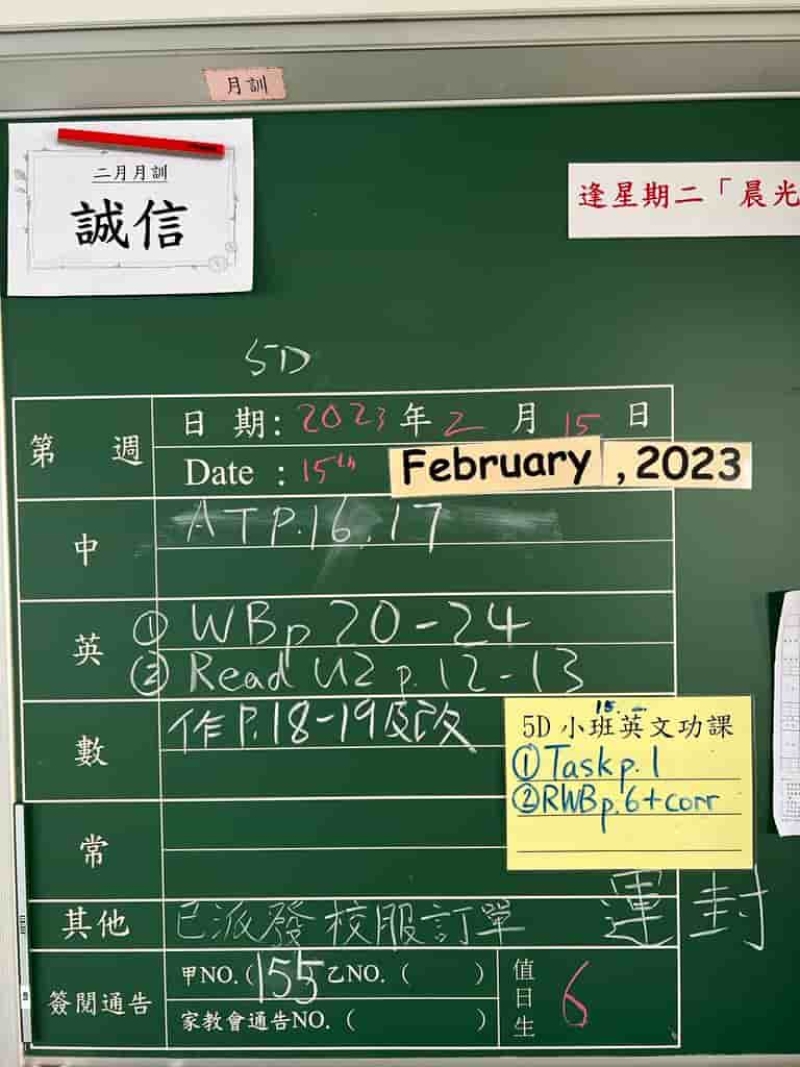 月訓
二月月訓
誠信
逢星期二「晨光
5D
第 週
日 期: 2023 年 2 月 15 日
Date : 15th February , 2023
中
ATP.16.17
英
① WBp 20-24
② Read U2 p.12-13
數
作P.18-19及改
5D 小班英文功課
15.
① Task p.1
② RWBp.6+corr
常
其他
已派發校服訂單 運封
簽閱通告
甲NO.(155 乙NO. ( )
家教會通告NO. ( )
值日生
6